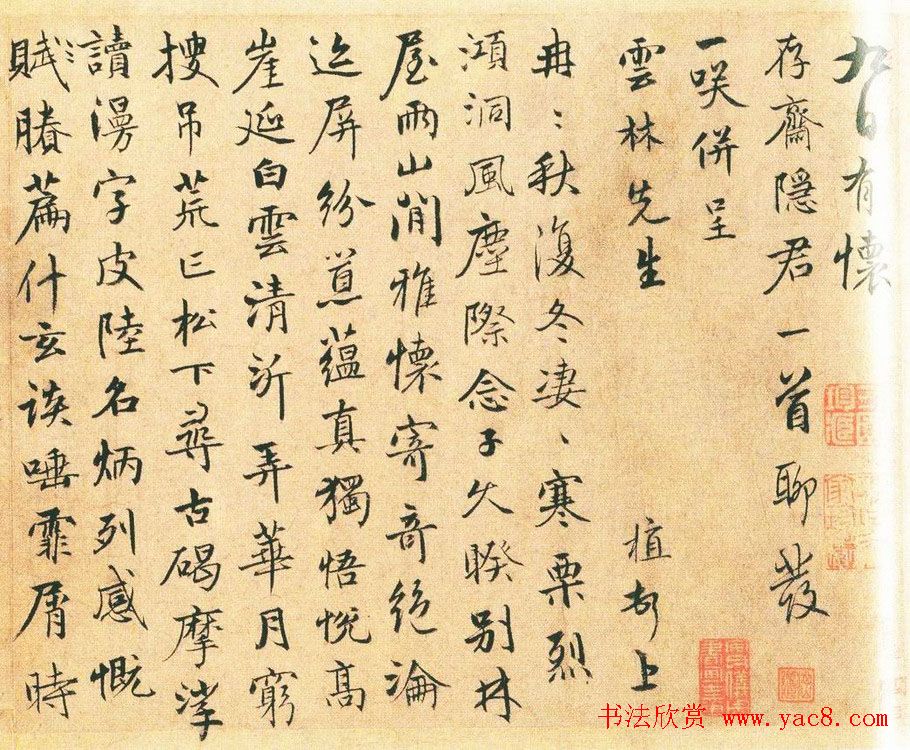 九日有懷
存齋隱君一首聊發
一咲併呈
雲林先生 植 上
冉〻秋復冬淒〻寒栗烈
澒洞風塵際念子久睽別林
屋兩山間雅懷寄奇絕淪
迹屏紛 蘊真獨悟悅高
崖延白雲清沂弄華月窮
搜吊荒 松下尋古碣摩挲
讀漫字皮陸名炳列感慨
賦賸篇什玄談唾霏屑時
书法欣赏 www.yac8.com